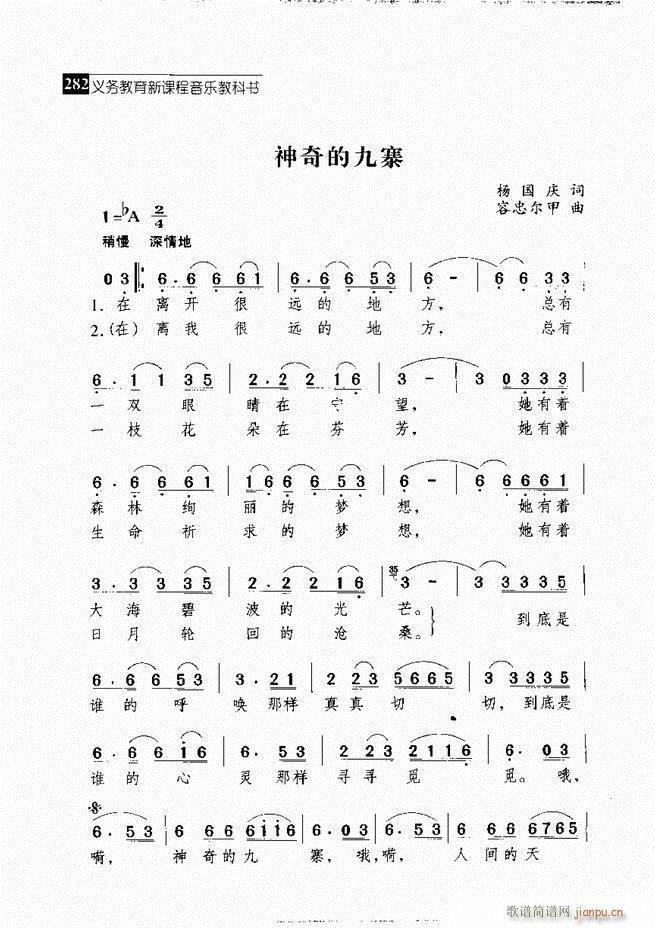 282 义务教育新课程音乐教科书
神奇的九寨
杨国庆 词
容忠尔甲 曲
1=♭A 2/4
稍慢 深情地
0 3 ‖: 6 . 6 6 6 1 | 6 . 6 6 5 3 | 6 - | 6 6 3 3
1. 在 离开很 远的地 方, 总有
2. (在) 离我很 远的地 方, 总有
6 . 1 1 3 5 | 2 . 2 2 1 6 | 3 - | 3 0 3 3 3
一双眼 睛在守 望, 她有着
一枝花 朵在芬 芳, 她有着
6 . 6 6 6 1 | 1 6 6 6 5 3 | 6 - | 6 6 6 6 1
森林绚 丽的梦 想, 她有着
生命祈 求的梦 想, 她有着
3 . 3 3 3 5 | 2 . 2 2 2 1 6 | 35 3 - | 3 3 3 3 5
大海碧 波的光 芒。 到底是
日月轮 回的沧 桑。
6 . 6 6 5 6 | 3 . 2 1 | 2 2 3 5 6 6 5 | 3 3 3 3 5
谁的呼 唤那样 真真切 切, 到底是
6 . 6 6 1 6 | 6 . 5 3 | 2 2 3 2 1 1 6 | 6 . 0 3
谁的心 灵那样 寻寻觅 觅。 哦,
6 . 5 3 | 6 6 6 6 1 1 6 | 6 . 0 3 | 6 . 5 3 | 6 6 6 6 7 6 5
嗬, 神奇的九 寨, 哦, 嗬, 人间的天
歌谱简谱网 jianpu.cn